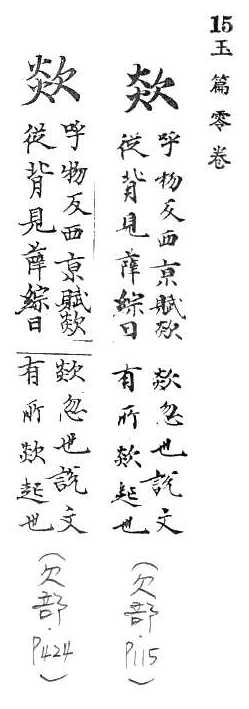 15玉篇零卷
欻
呼物反西京賦欻
從背見薛綜曰
欻忽也說文
有所欻起也
（欠部·P115）
欻
呼物反西京賦欻
從背見薛綜曰
欻忽也說文
有所欻起也
（欠部·P424）